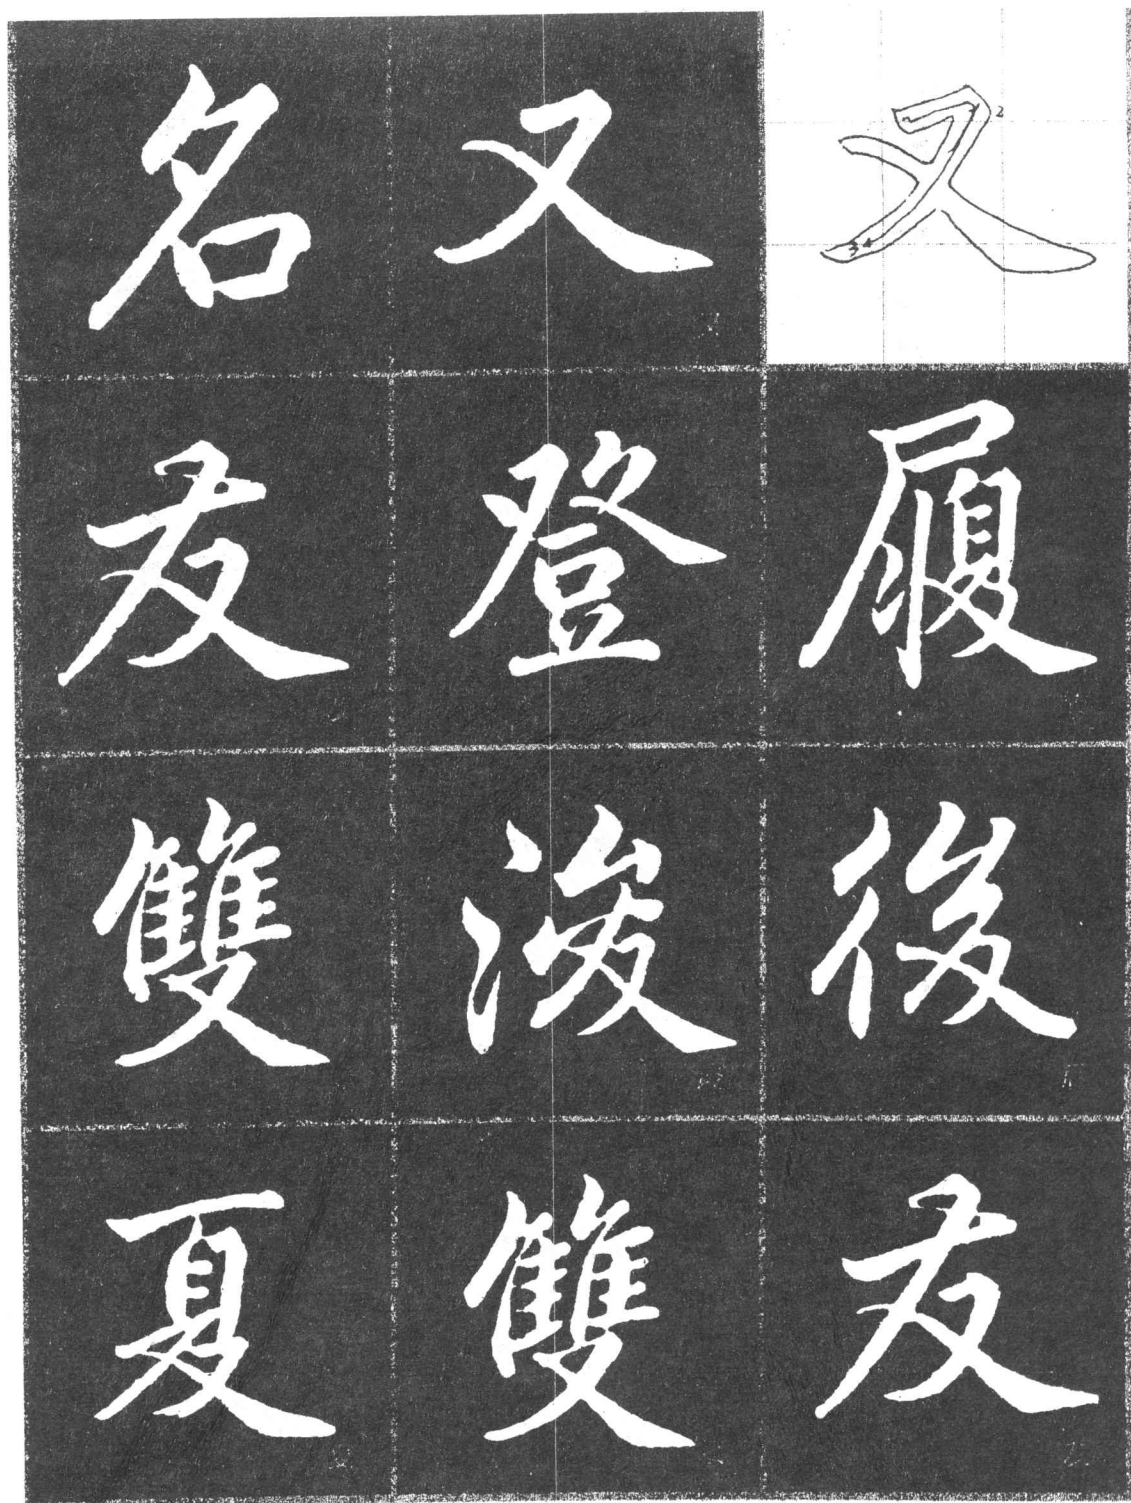 又履後友
又登浚雙
名友雙夏